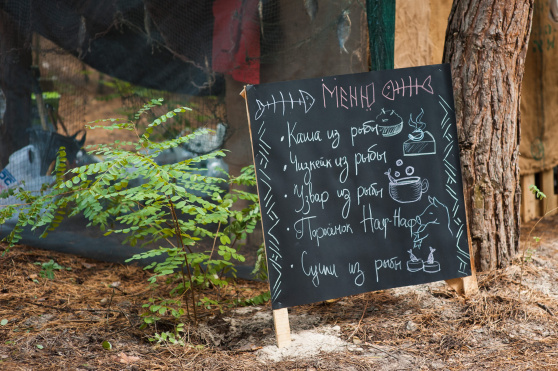 Меню!
Каша из рыбы
Чизкейк из рыбы
Узвар из рыбы
Поросёнок Наф-Наф
Суши из рыбы